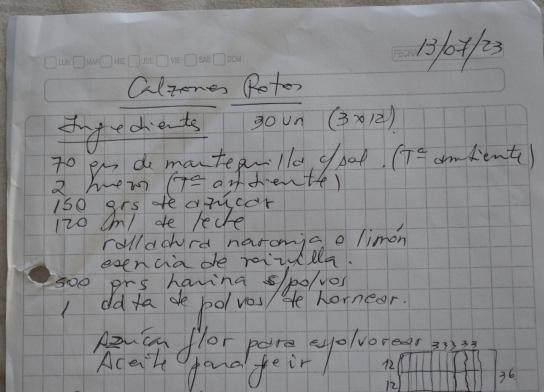 LUN MAR MIE JUE VIE SAB DOM
FECHA 13/07/23
Calzones Rotos
Ingredientes 30 un (3x12)
70 grs de mantequilla c/sal. (Tª ambiente)
2 huevos (Tª ambiente)
150 grs de azúcar
120 ml de leche
ralladura naranja o limón
esencia de vainilla.
500 grs harina s/polvos
1 cdta de polvos de hornear.
Azúcar flor para espolvorear
Aceite para freir
3 3 3 3 3
12
12
36